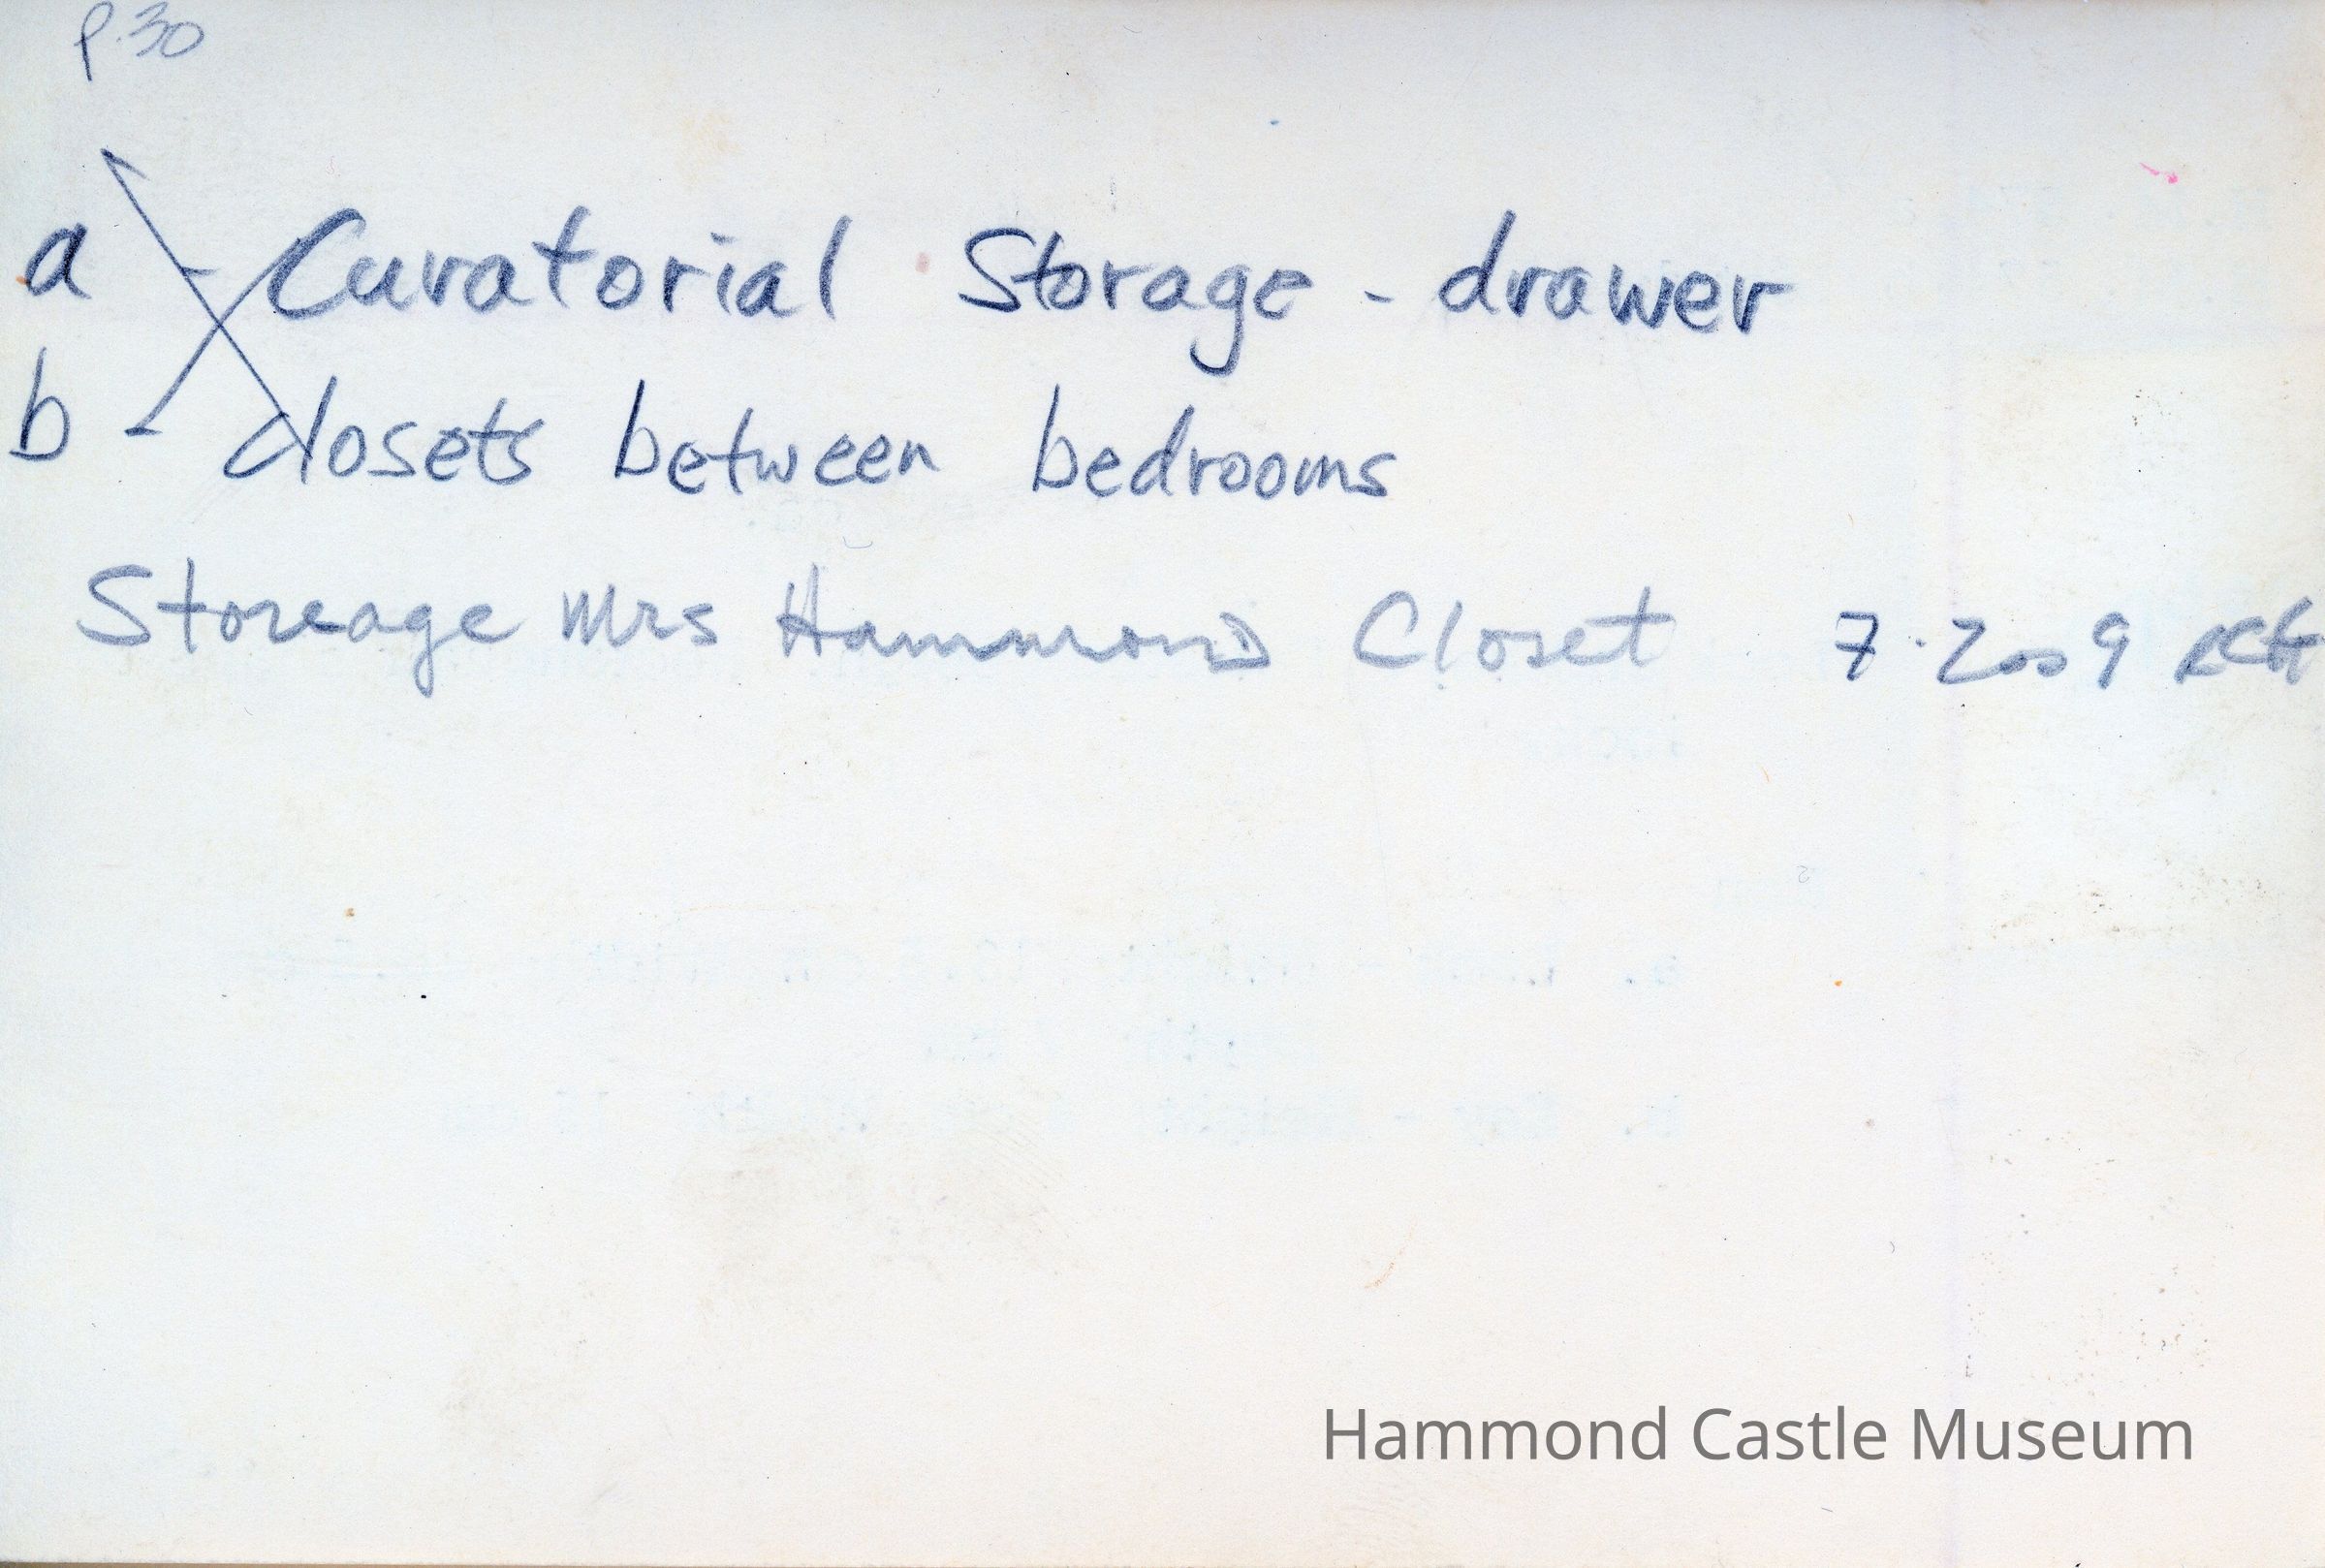 p.30
a - Curatorial Storage - drawer
b - closets between bedrooms
Storeage Mrs Hammond Closet 7.2009
Hammond Castle Museum